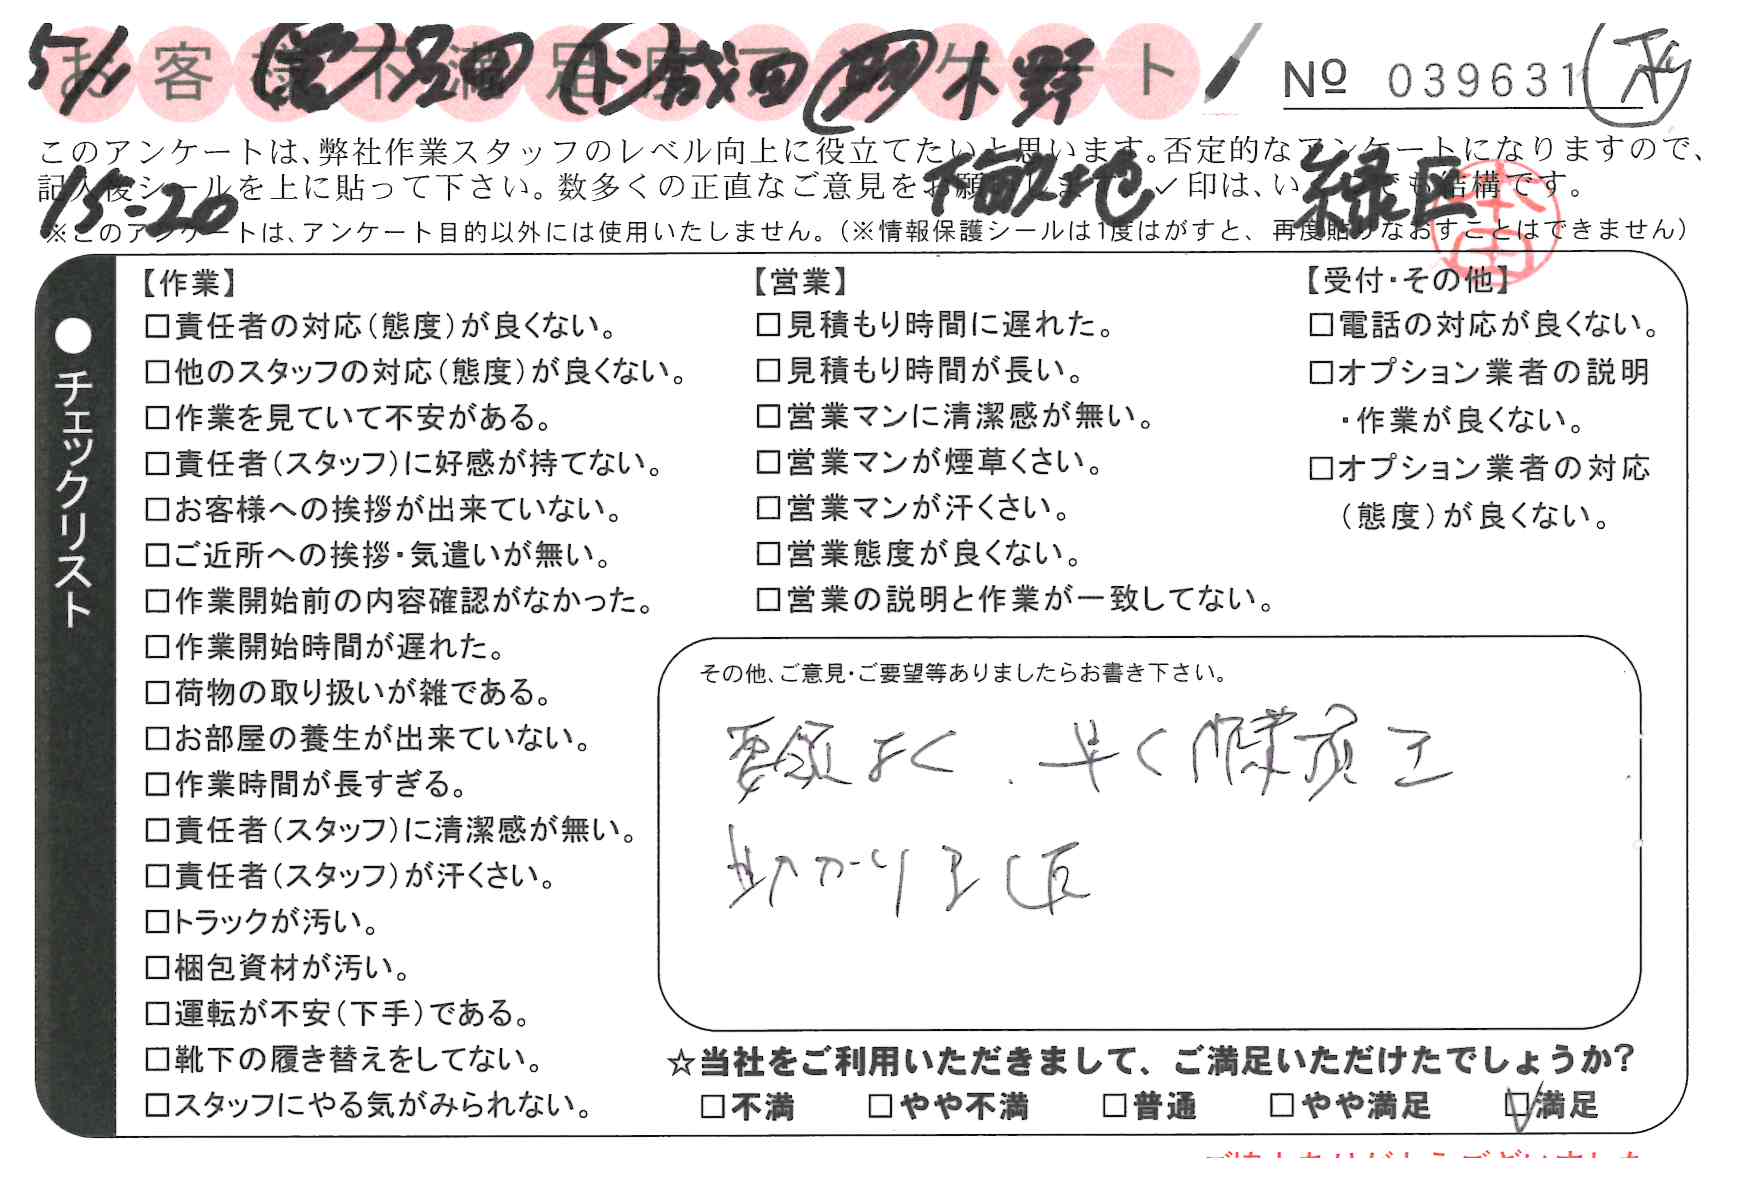 お客様不満足度アンケート
5/1 足田 成田 木野
№ 039631
このアンケートは、弊社作業スタッフのレベル向上に役立てたいと思います。否定的なアンケートになりますので、
記入後シールを上に貼って下さい。数多くの正直なご意見をお願いします。✓印は、いくつでも結構です。
15-20 緑区
※このアンケートは、アンケート目的以外には使用いたしません。(※情報保護シールは1度はがすと、再度貼りなおすことはできません)
本田
●チェックリスト
【作業】
□責任者の対応(態度)が良くない。
□他のスタッフの対応(態度)が良くない。
□作業を見ていて不安がある。
□責任者(スタッフ)に好感が持てない。
□お客様への挨拶が出来ていない。
□ご近所への挨拶・気遣いが無い。
□作業開始前の内容確認がなかった。
□作業開始時間が遅れた。
□荷物の取り扱いが雑である。
□お部屋の養生が出来ていない。
□作業時間が長すぎる。
□責任者(スタッフ)に清潔感が無い。
□責任者(スタッフ)が汗くさい。
□トラックが汚い。
□梱包資材が汚い。
□運転が不安(下手)である。
□靴下の履き替えをしてない。
□スタッフにやる気がみられない。
【営業】
□見積もり時間に遅れた。
□見積もり時間が長い。
□営業マンに清潔感が無い。
□営業マンが煙草くさい。
□営業マンが汗くさい。
□営業態度が良くない。
□営業の説明と作業が一致してない。
【受付・その他】
□電話の対応が良くない。
□オプション業者の説明
・作業が良くない。
□オプション業者の対応
(態度)が良くない。
その他、ご意見・ご要望等ありましたらお書き下さい。
要領よく、早く作業頂き
助かりました
☆当社をご利用いただきまして、ご満足いただけたでしょうか?
□不満 □やや不満 □普通 □やや満足 ☑満足
ご協力ありがとうございました